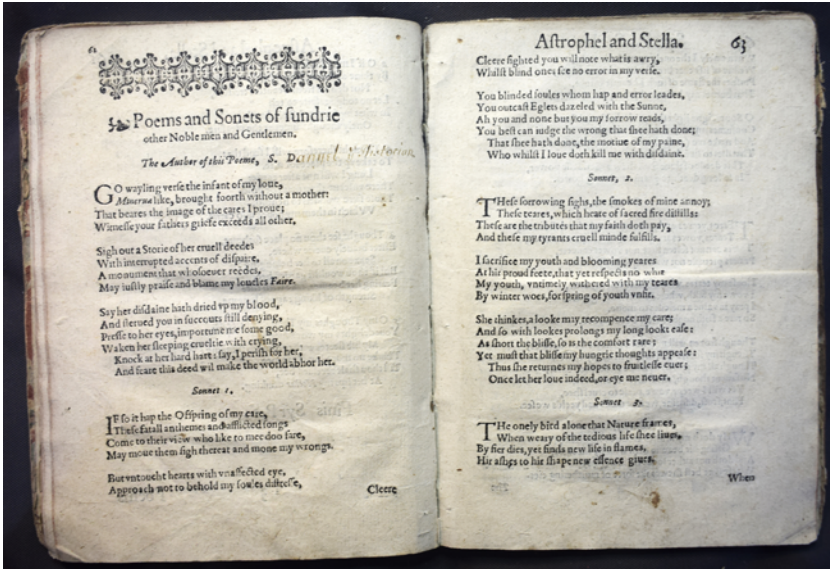 Poems and Sonets of ſundrie
other Noble men and Gentlemen.
The Author of this Poeme, S. Daniel
GO wayling verſe the infant of my loue,
Minerua like, brought foorth without a mother:
That beares the image of the cares I proue;
Witneſſe your fathers griefe exceeds all other.
Sigh out a Storie of her cruell deedes
With interrupted accents of diſpaire,
A monument that whoſoeuer reedes,
May iuſtly praiſe and blame my loueles Faire.
Say her diſdaine hath dried vp my blood,
And ſterued you in ſuccours ſtill denying,
Preſſe to her eyes, importune me ſome good,
Waken her ſleeping crueltie with crying,
Knock at her hard hart: ſay, I periſh for her,
And feare this deed wil make the world abhor her.
Sonnet 1.
IF ſo it hap the Ofſpring of my care,
Theſe fatall anthemes and afflicted ſongs
Come to their view who like to mee doo fare,
May moue them ſigh thereat and mone my wrongs.
But vntoucht hearts with vnaffected eye,
Approach not to behold my ſoules diſtreſſe,
Cleere
Aſtrophel and Stella. 63
Cleere ſighted you will note what is awry,
Whilſt blind ones ſee no error in my verſe.
You blinded ſoules whom hap and error leades,
You outcaſt Eglets dazeled with the Sunne,
Ah you and none but you my ſorrow reads,
You beſt can iudge the wrong that ſhee hath done;
That ſhee hath done, the motiue of my paine,
Who whilſt I loue doth kill me with diſdaine.
Sonnet, 2.
THeſe ſorrowing ſighs, the ſmokes of mine annoy;
Theſe teares, which heate of ſacred fire diſtills:
Theſe are the tributes that my faith doth pay,
And theſe my tyrants cruell minde fulfills.
I ſacrifice my youth and blooming yeares
At hir proud feete, that yet reſpects no whit
My youth, vntimely withered with my teares
By winter woes, for ſpring of youth vnfit.
She thinkes, a looke may recompence my care;
And ſo with lookes prolongs my long lookt eaſe:
As ſhort the bliſſe, ſo is the comfort rare;
Yet muſt that bliſſe my hungrie thoughts appeaſe:
Thus ſhe returnes my hopes to fruitleſſe euer;
Once let her loue indeed, or eye me neuer.
Sonnet 3.
THe onely bird alone that Nature frames,
When weary of the tedious life ſhee liues,
By fier dies, yet finds new life in flames,
Hir aſhes to hir ſhape new eſſence giues.
When